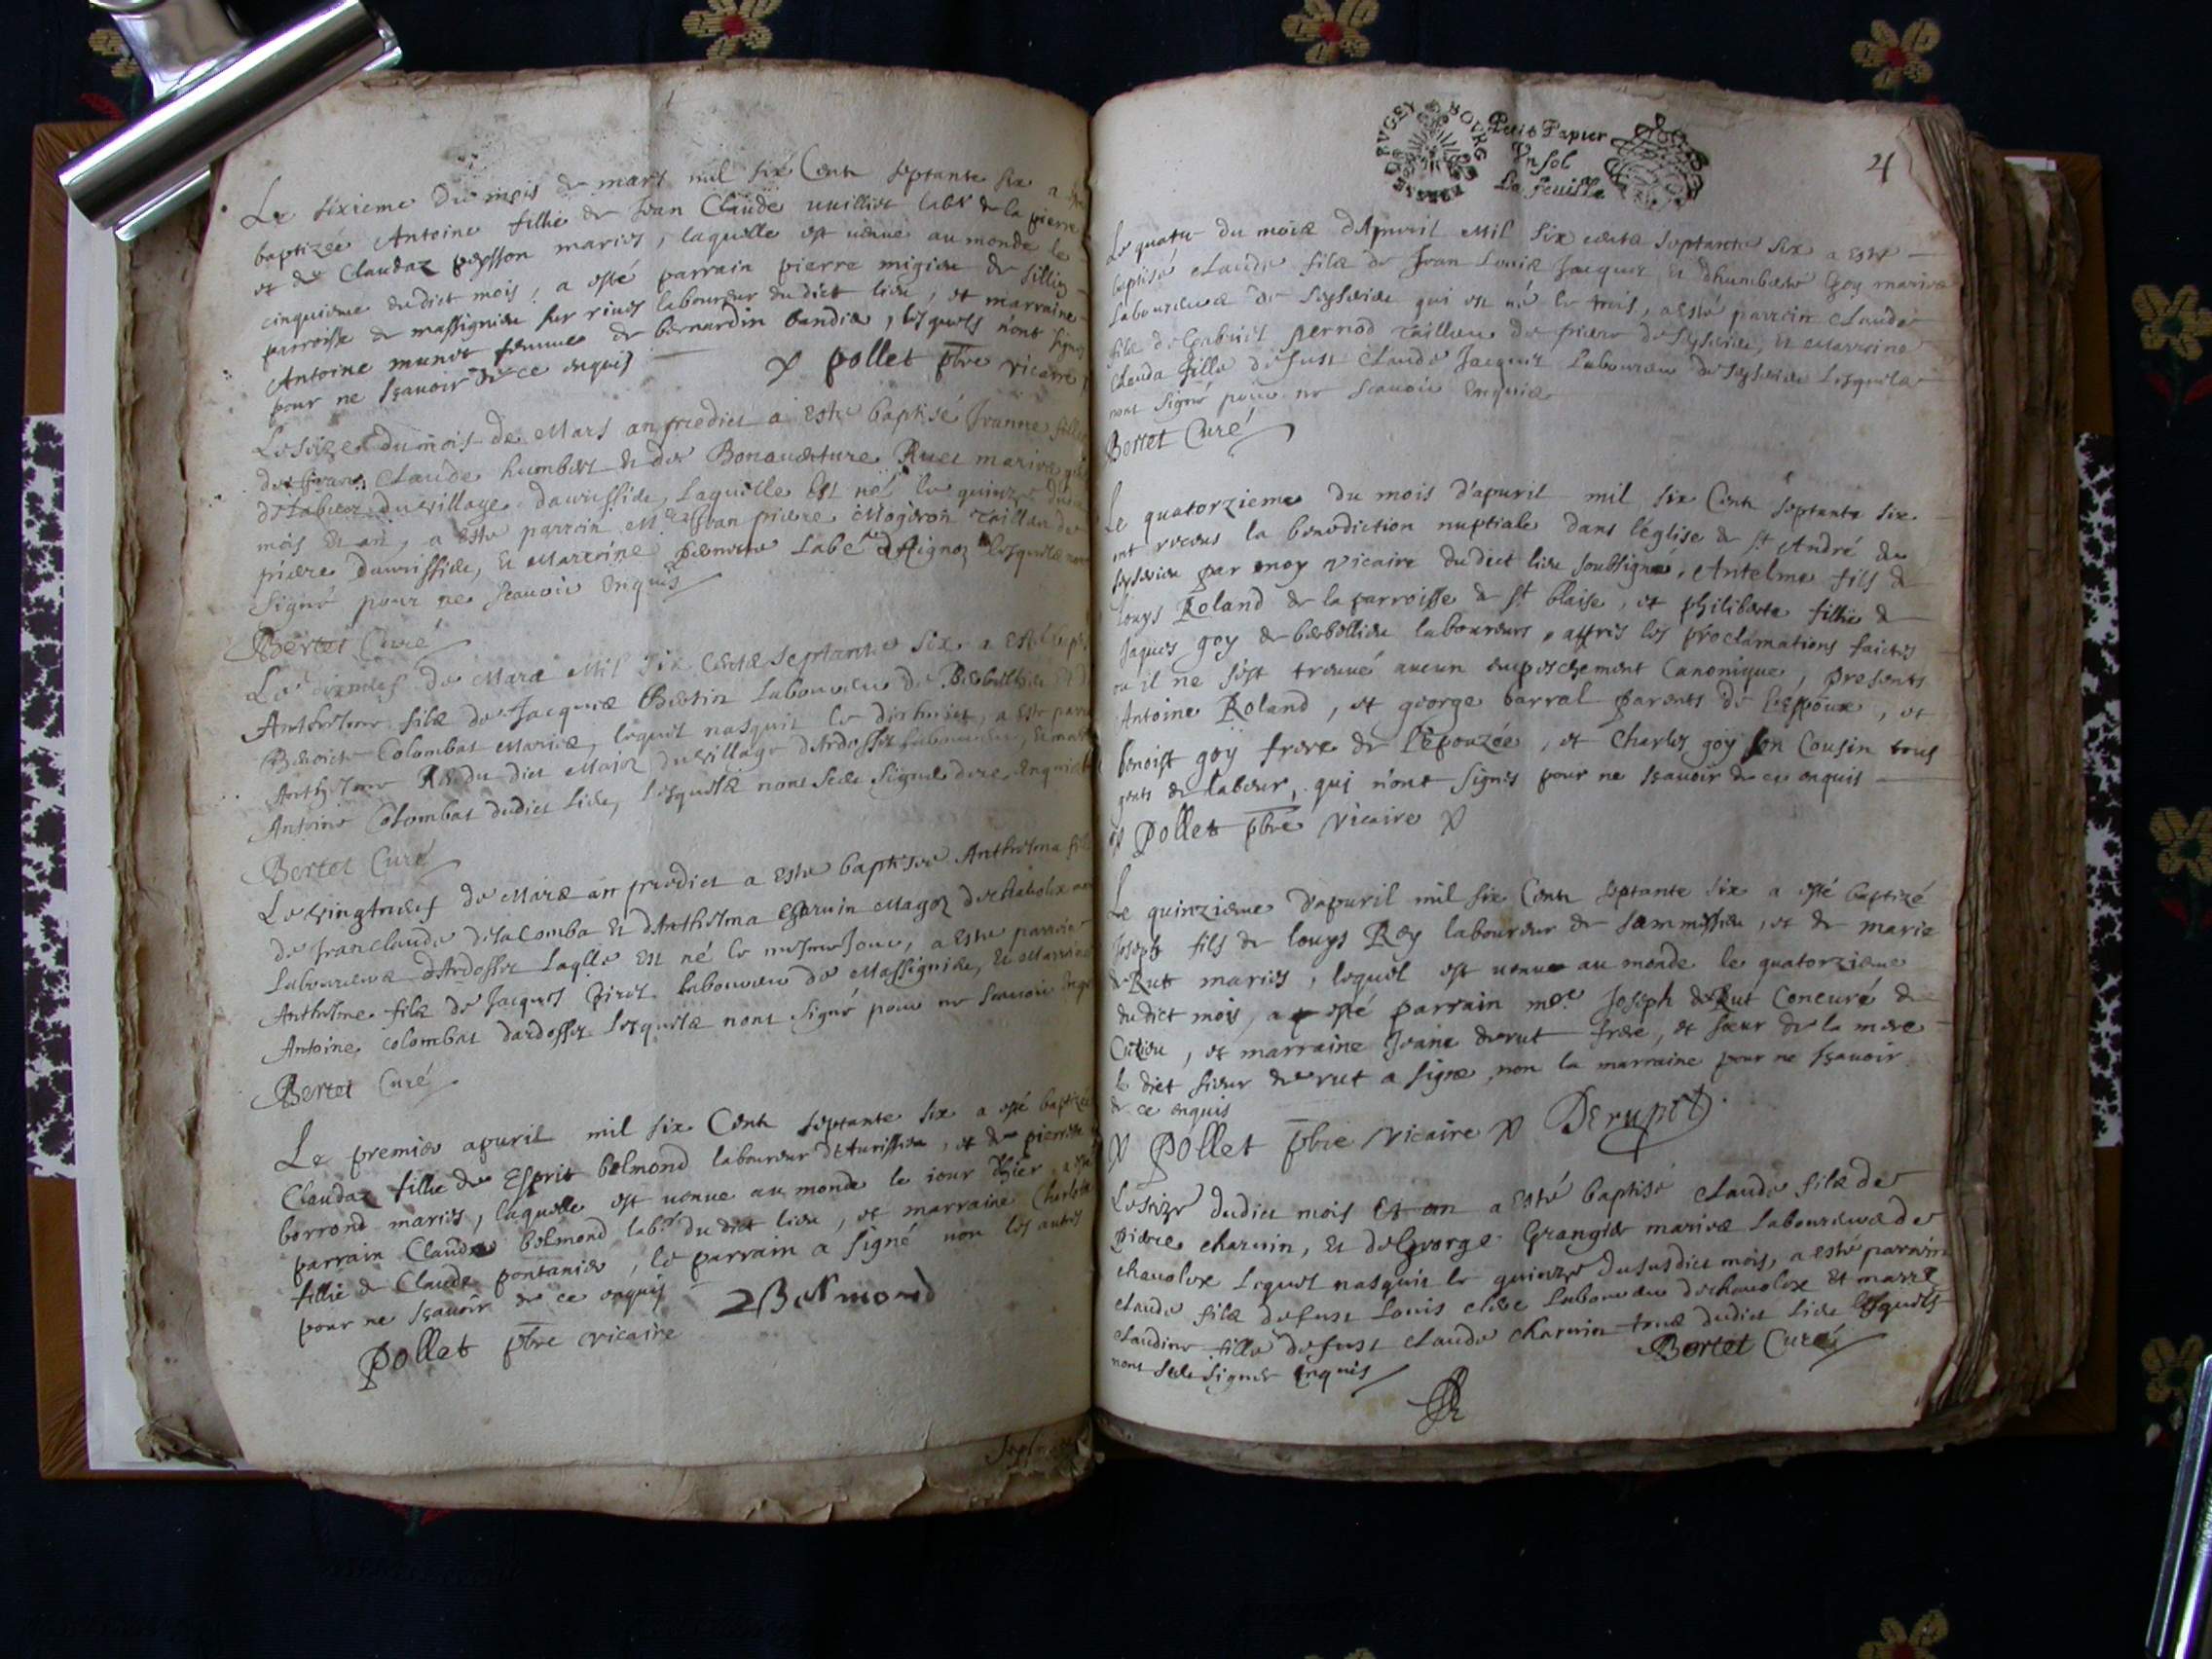 Le sixieme du mois de mars mil six Centz septante six a
baptizée Antoine fillie de Jean Claude vuillier labr de la pierre
et de Claudaz pesson mariés, laquelle est venue au monde le
cinquieme dudict mois, a esté parrain pierre migieu de sillieu
parroisse de massignieu sur rives laboureur du dict lieu, et marraine
Antoine munet femme de bernardin bandiu, lesquels n'ont signés
pour ne sçavoir de ce enquis
pollet pbre vicaire
Le seize du mois de Mars an predict a esté baptisé Jeanne fille
de Jean Claude humbert et de Bonaventure Ruet mariés
de labeur du village daurissieu, laquelle est né le quinze du
mois et an, a esté parrain Mre Jean pierre Mogeron tailleu de
pierre daurissieu, et Marrine pernette Lesquelz nont
signé pour ne scavoir enquis
Bertet Curé
Le de Mars Mil six centz septante six a esté bapt
Anthelme filz de Jacques Bertin Laboureu de Berbellieu et
Benoite Colombat Mariez, lequel nasquit le dixhuict, a esté parr
Anthelme Rey du dict Major du village dArdosset laboureur, et mar
Antoine Colombat dudict lieu, lesquelz nont sceu signer de ce enquis
Bertet Curé
Le vingtneuf de Mars an predict a esté baptisée Anthelma fil
de Jeanclaude delacomba et dAnthelma Charvin
Laboureurs dArdosset laqlle est né le mesme Jour, a esté parrain
Anthelme filz de Jacques Piret laboureu de Massignieu, et Marrine
Antoine colombat dardosset lesquelz nont signé pour ne scavoir enq
Bertet Curé
Le premier apuril mil six Centz septante six a esté baptizée
Claudaz fillie de Esprit belmond laboureur d'Aurissieu, et de pierrette
borrond mariés, laquelle est venue au monde le iour d'hier, a esté
parrain Claude belmond labr du dict lieu, et marraine Charlotte
fillie de Claude pontanier, le parrain a signé non les autres
pour ne sçavoir de ce enquis
Belmond
Pollet pbre vicaire
BOVRG BRESSE ET BVGEY
Petit Papier
Vn sol
La feuille
4
Le quatre du mois dApvril Mil six centz septante six a esté
baptisé Claude filz de Jean Louis Jacquet et dhumberte Goy mariez
Laboureurs de Seyssieu qui est né le trois, a esté parrain Claude
filz de Gabriel Pernod tailleu de pierre de Seyssieu, et Marraine
Clauda fille de fust Claude Jacquet Laboureu de Seyssieu lesquelz
nont signé pour ne scavoir enquis
Bertet Curé
Le quatorzieme du mois d'apuril mil six Centz septante six
ont receus la benediction nuptiale dans l'église de st André de
seyssieu par moy vicaire dudict lieu soubsigné, Antelme fils de
louys Roland de la parroisse de st blaise, et philiberte fillie de
Jaques goy de berbellieu laboureurs, appris les proclamations faictes
ou il ne s'est trouué aucun empeschement Canonique, presents
Antoine Roland, et george barral parents de l'Espoux, et
benoist goy frere de l'Epouzée, et Charles goy son Cousin tous
gents de labeur, qui n'ont signés pour ne sçavoir de ce enquis
Pollet pbre vicaire
Le quinzieme d'apuril mil six Centz septante six a esté baptizé
Joseph fils de louys Rey laboureur de sammissieu, et de marie
deRut mariés, lequel est venu au monde le quatorzieme
dudict mois, a esté parrain mre Joseph deRut Concuré de
Cuzieu, et marraine Jeane derut frere, et sœur de la mere
le dict sieur de rut a signe, non la marraine pour ne sçavoir
de ce enquis
Pollet pbre vicaire Derupt
Le seize dudict mois et an a esté baptisé Claude filz de
Pierre charvin, et de George Grangier mariez Laboureurs de
chavolex lequel nasquit le quinze du susdict mois, a esté parrain
Claude filz de fust Louis Clerc laboureu de chavolex et marre
Claudine fille de fust Claude charvin touz dudict lieu lesquels
nont sceu signer enquis
Bertet Curé